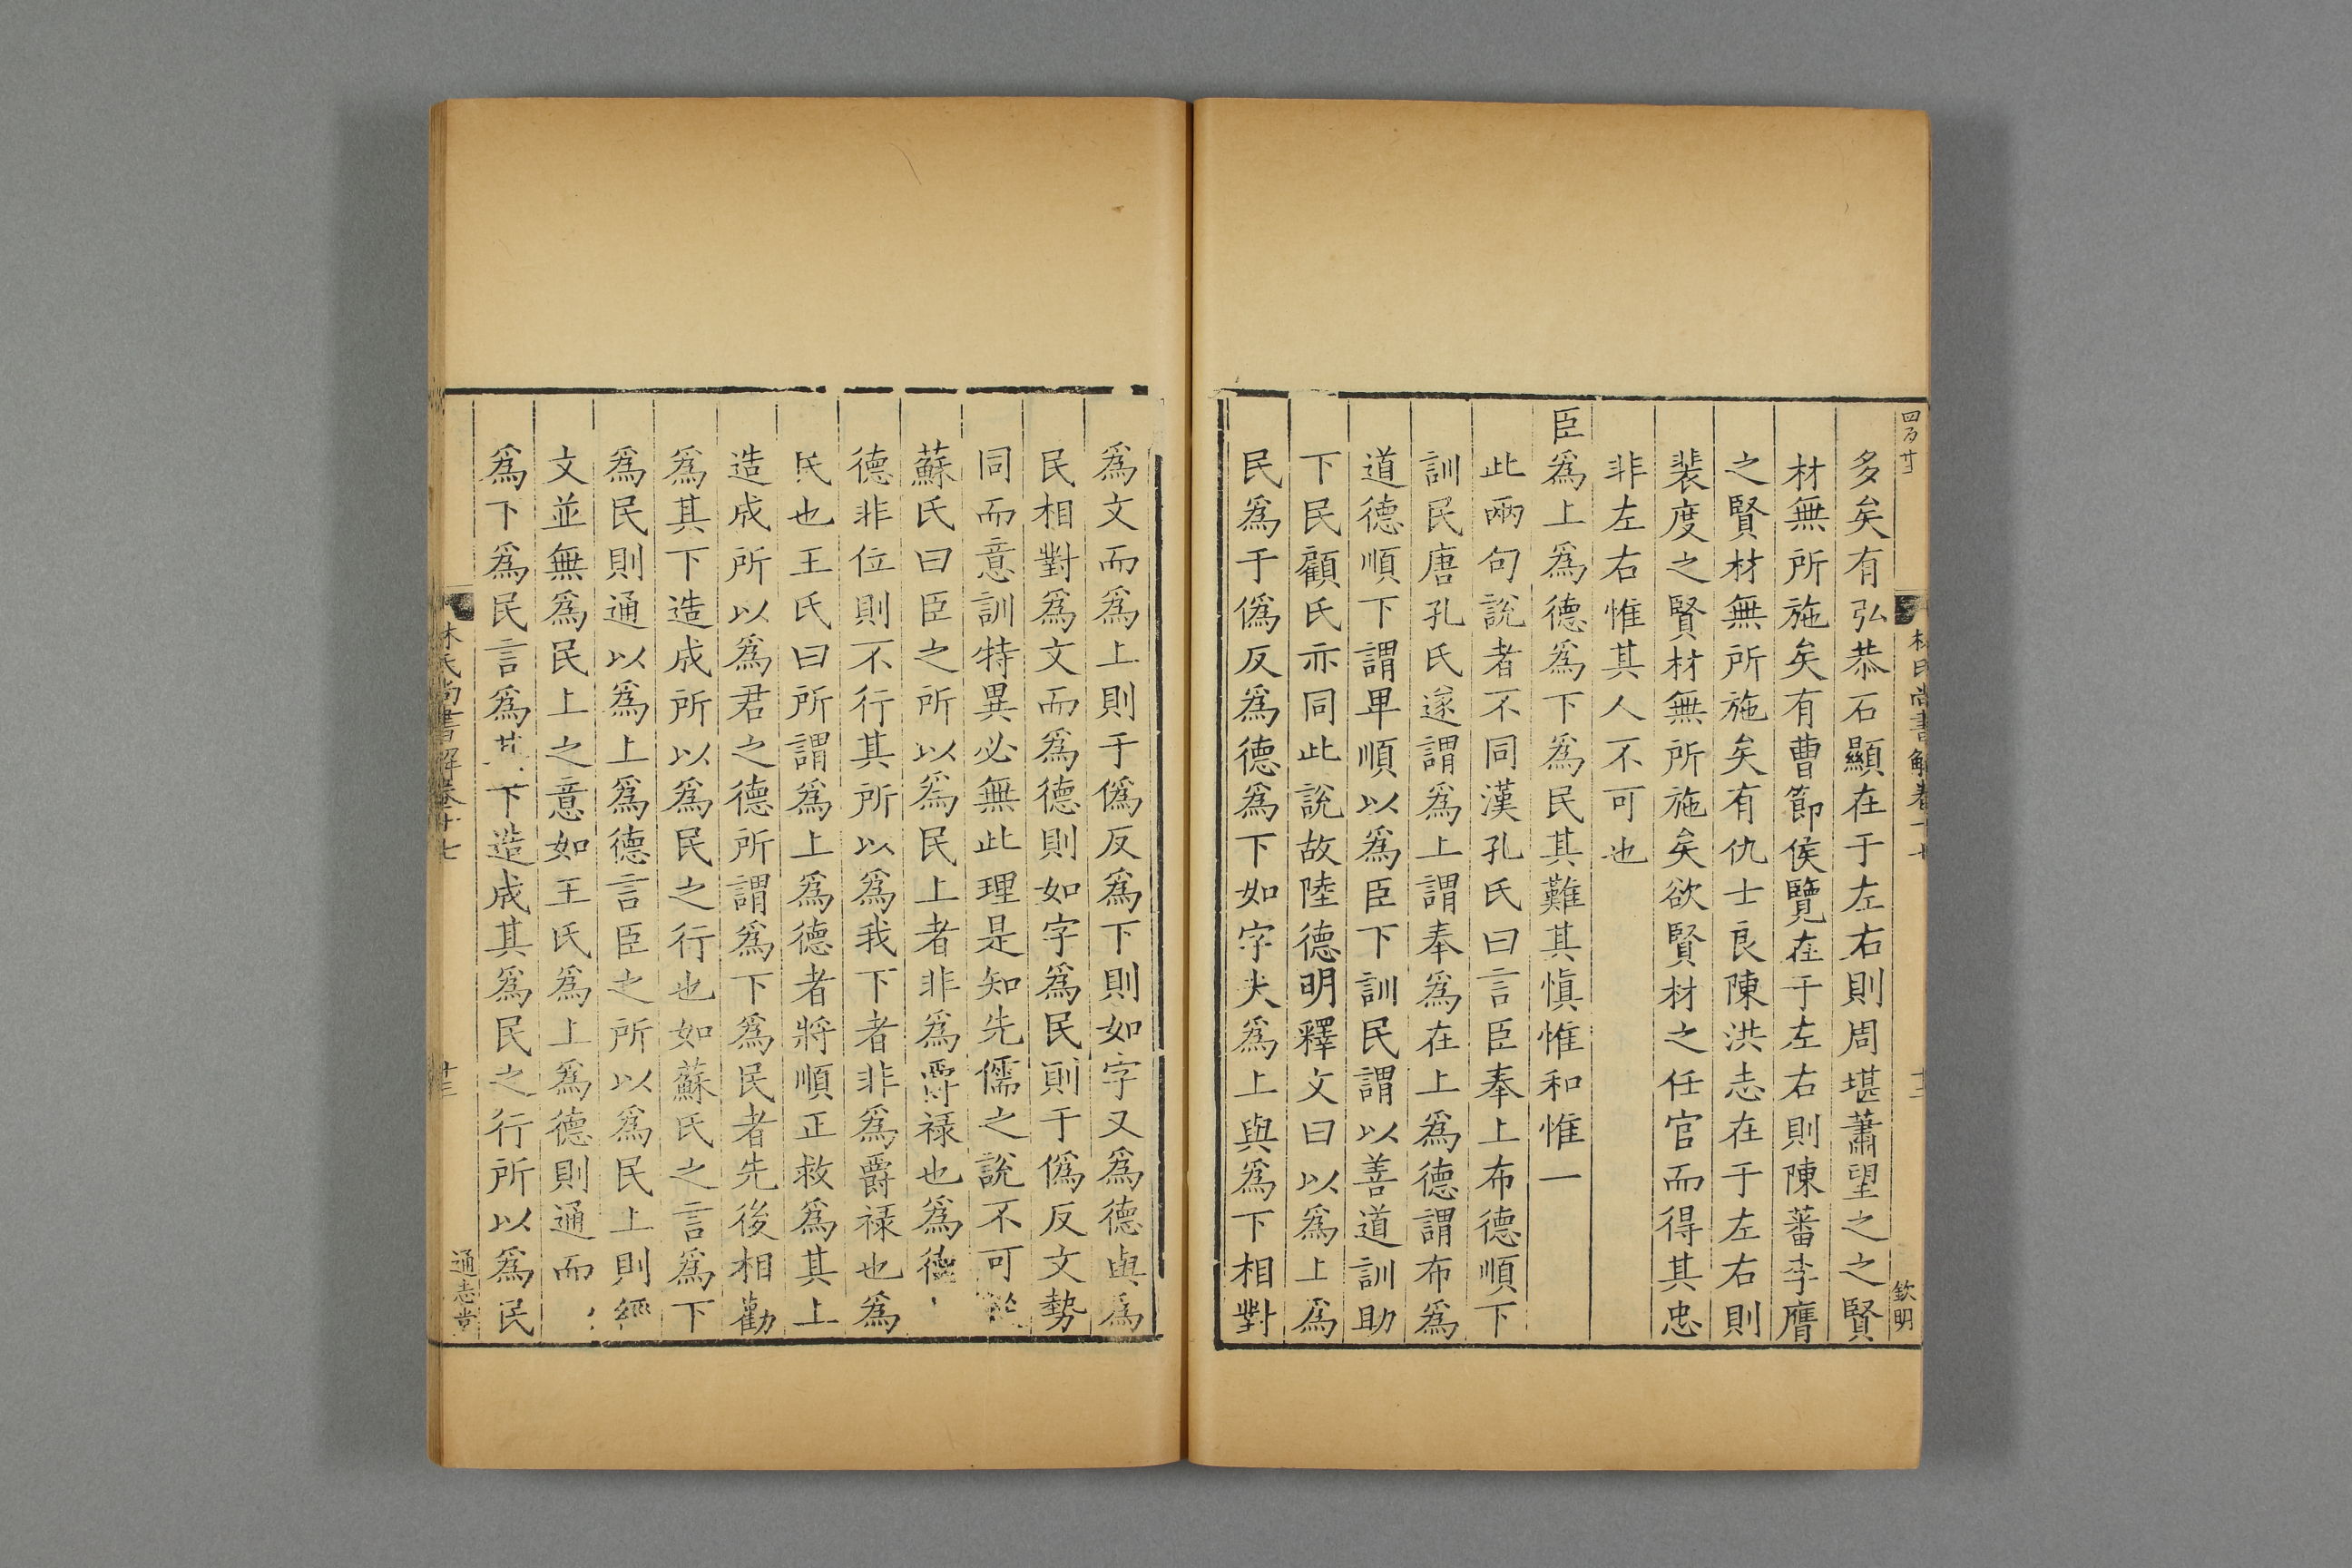 多矣有弘恭石顯在于左右則周堪蕭望之之賢
材無所施矣有曹節侯覽在于左右則陳蕃李膺
之賢材無所施矣有仇士良陳洪志在于左右則
裴度之賢材無所施矣欲賢材之任官而得其忠
非左右惟其人不可也
臣爲上爲德爲下爲民其難其愼惟和惟一
此兩句說者不同漢孔氏曰言臣奉上布德順下
訓民唐孔氏遂謂爲上謂奉爲在上爲德謂布爲
道德順下謂卑順以爲臣下訓民謂以善道訓助
下民顧氏亦同此說故陸德明釋文曰以爲上爲
民爲于僞反爲德爲下如字夫爲上與爲下相對
欽明
爲文而爲上則于僞反爲下則如字又爲德與爲
民相對爲文而爲德則如字爲民則于僞反文勢
同而意訓特異必無此理是知先儒之說不可
蘇氏曰臣之所以爲民上者非爲爵祿也爲德
德非位則不行其所以爲我下者非爲爵祿也爲
民也王氏曰所謂爲上爲德者將順正救爲其上
造成所以爲君之德所謂爲下爲民者先後相勸
爲其下造成所以爲民之行也如蘇氏之言爲下
爲民則通以爲上爲德言臣之所以爲民上則經
文並無爲民上之意如王氏爲上爲德則通而
爲下爲民言爲其下造成其爲民之行所以爲民
林氏尚書解卷十七
十三
通志堂